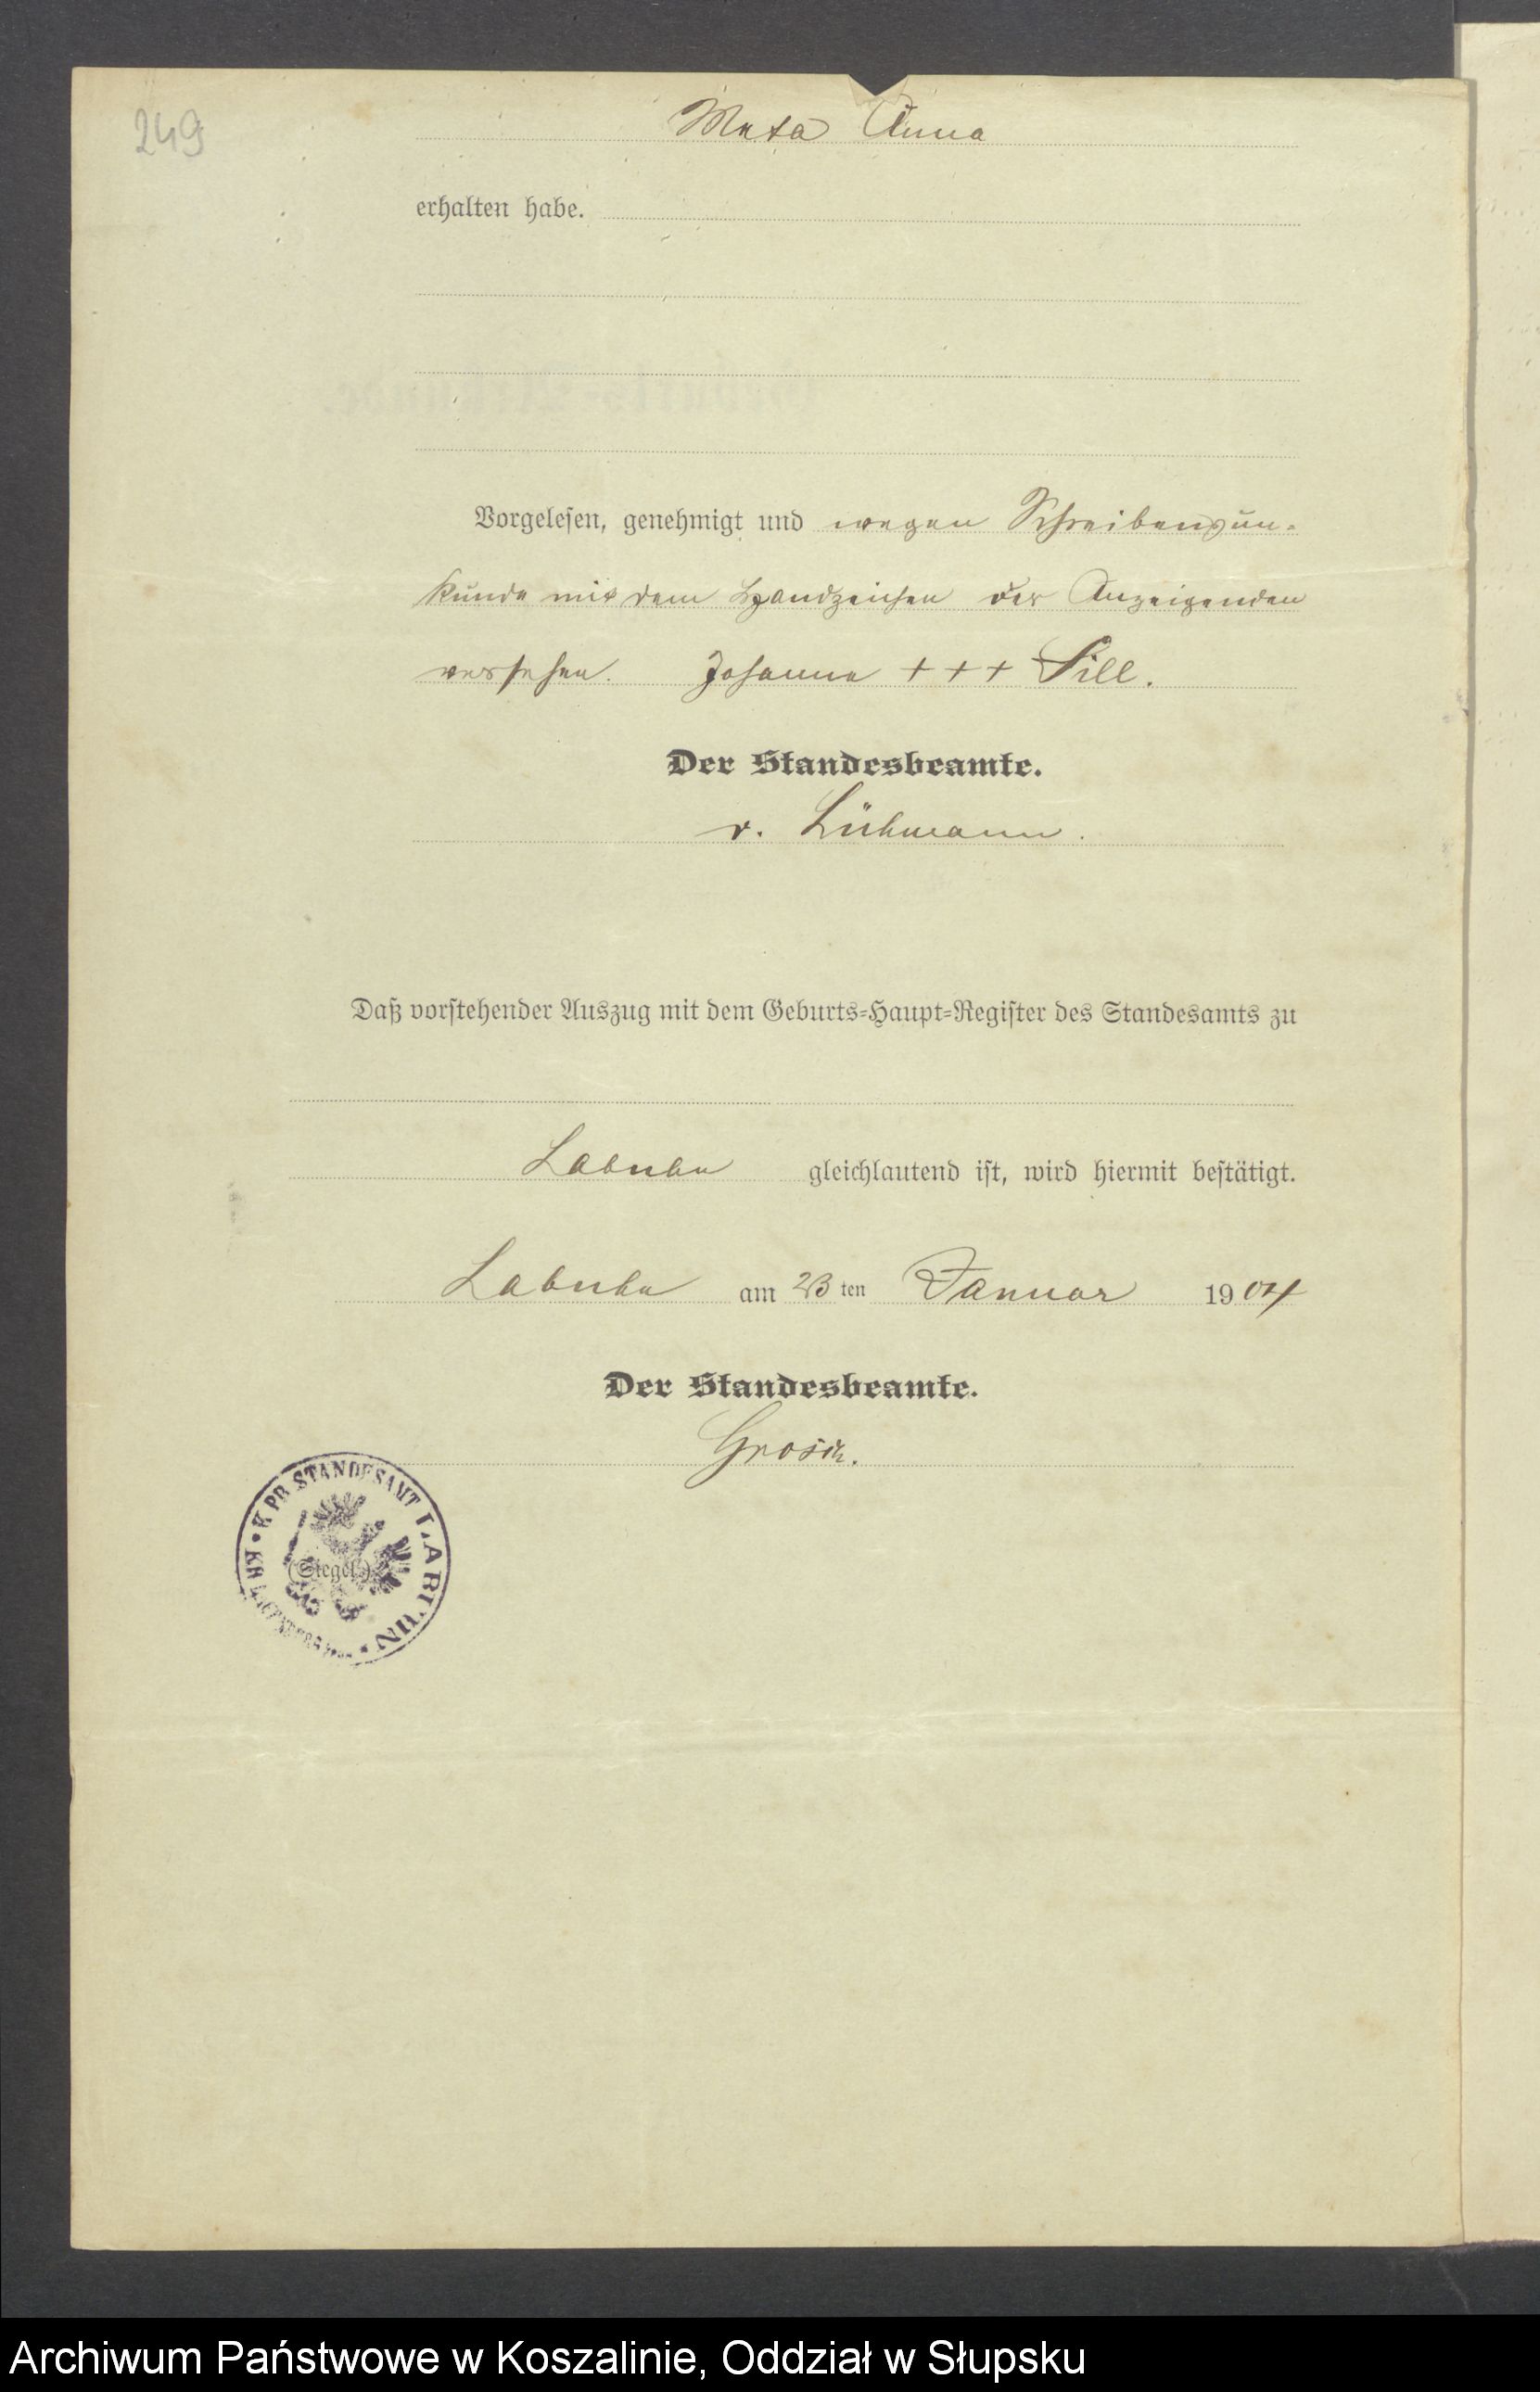 249
Meta Anna
erhalten habe.
Vorgelesen, genehmigt und wegen Schreibensun-
kunde mit dem Handzeichen der Anzeigenden
versehen. Johanne +++ Sill.
Der Standesbeamte.
v. Lühmann.
Daß vorstehender Auszug mit dem Geburts-Haupt-Register des Standesamts zu
Labuhn gleichlautend ist, wird hiermit bestätigt.
Labuhn am 23ten Januar 1904
Der Standesbeamte.
K. PR. STANDESAMT LABUHN
(Siegel.)
Archiwum Państwowe w Koszalinie, Oddział w Słupsku